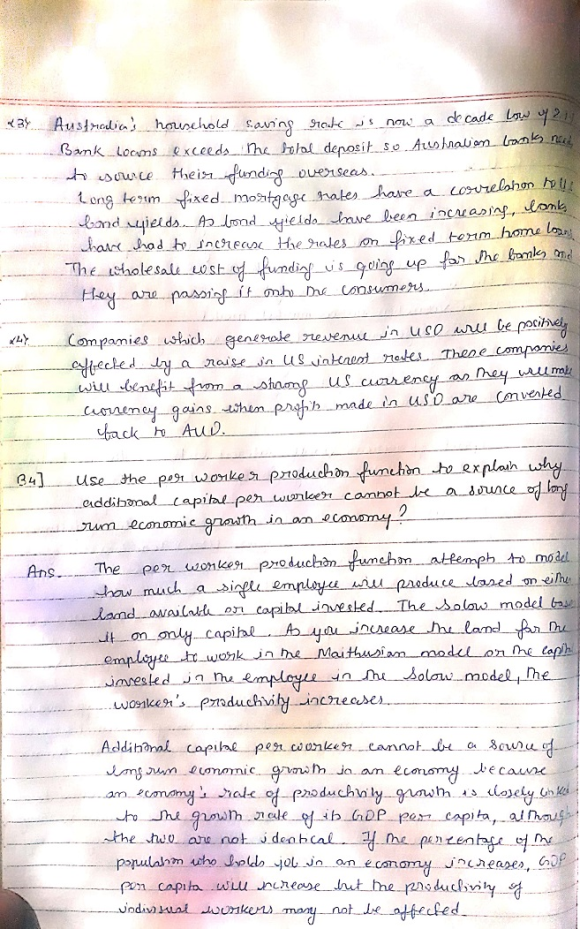 <3> Australia's household saving rate is now a decade low of 2.1
Bank loans exceeds the total deposit so Australian banks need
to source their funding overseas.
Long term fixed mortgage rates have a correlation to US
bond yields. As bond yields have been increasing, banks
have had to increase the rates on fixed term home loans
The wholesale cost of funding is going up for the banks and
they are passing it onto the consumers.
<4> Companies which generate revenue in USD will be positively
affected by a raise in US interest rates. These companies
will benefit from a strong US currency as they will make
currency gains when profits made in USD are converted
back to AUD.
B4] Use the per worker production function to explain why
additional capital per worker cannot be a source of long
run economic growth in an economy?
Ans. The per worker production function attempts to model
how much a single employee will produce based on either
land available or capital invested. The Solow model base
it on only capital. As you increase the land for the
employee to work in the Malthusian model or the capital
invested in the employee in the Solow model, the
worker's productivity increases.
Additional capital per worker cannot be a source of
long run economic growth in an economy because
an economy's rate of productivity growth is closely linked
to the growth rate of its GDP per capita, although
the two are not identical. If the percentage of the
population who holds job in an economy increases, GDP
per capita will increase but the productivity of
individual workers may not be affected.